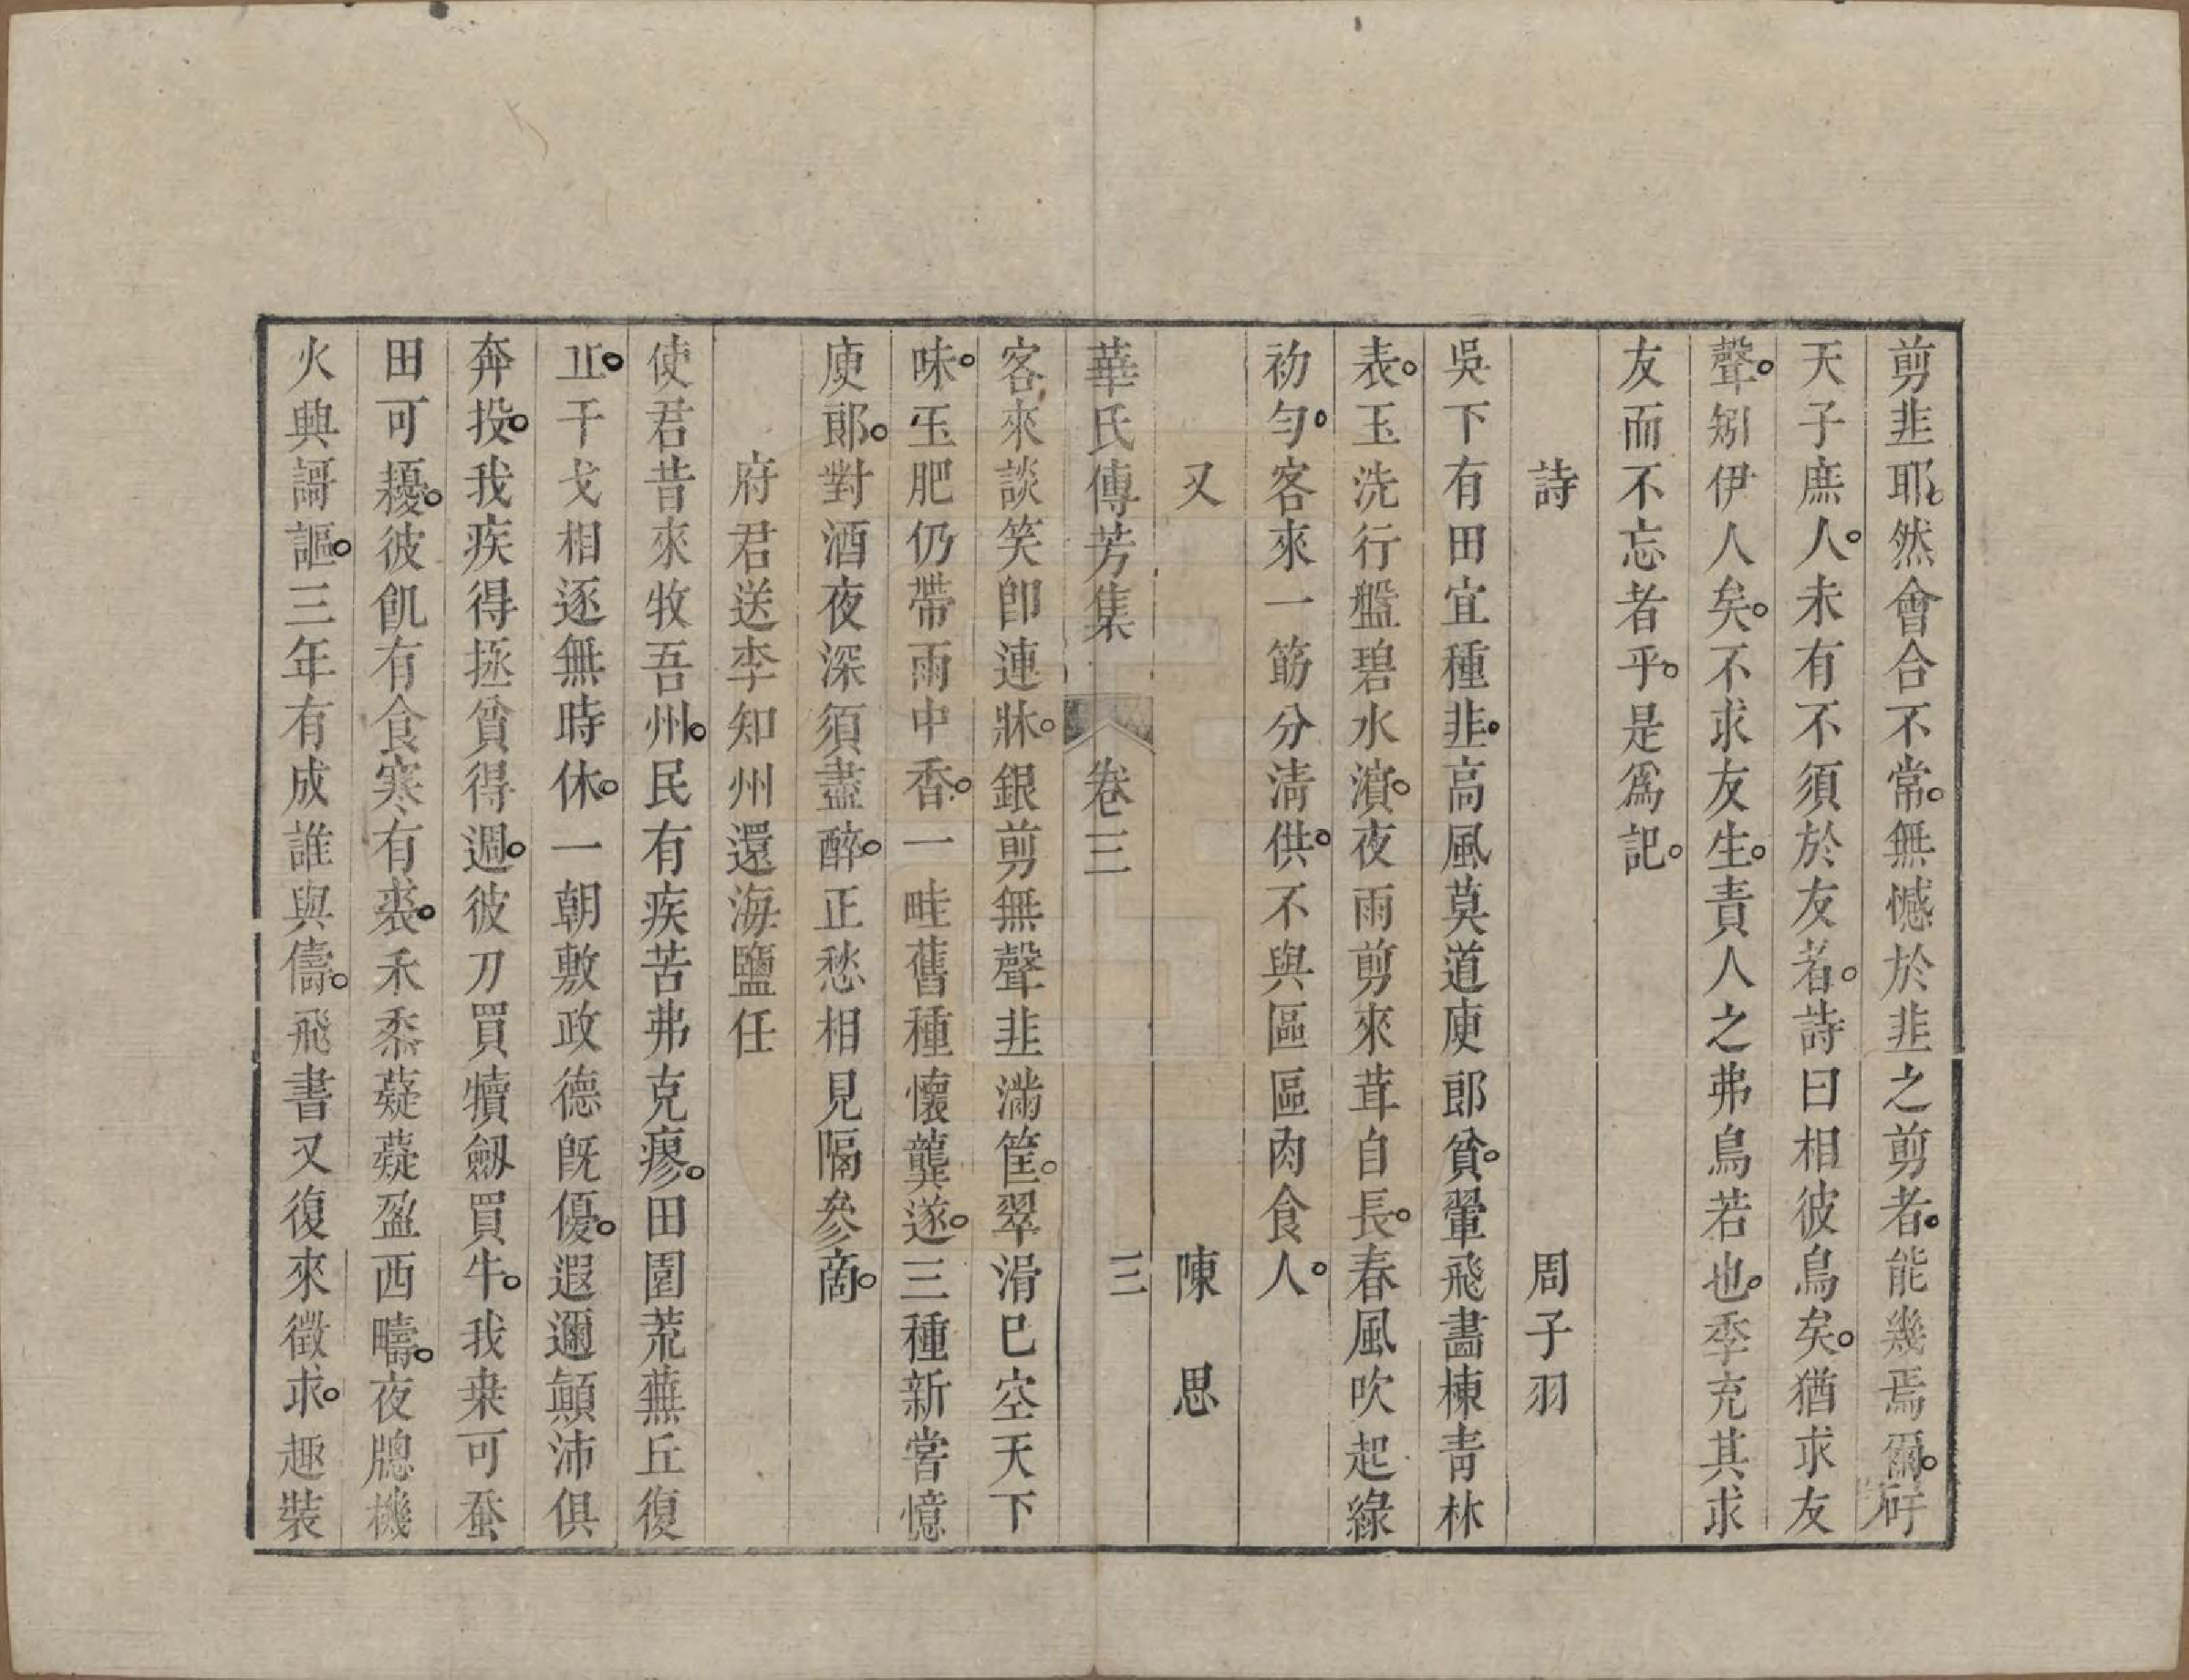 剪韭耶。然會合不常。無憾於韭之剪者。能幾焉爾。吁
天子庶人。未有不須於友者。詩曰相彼鳥矣。猶求友
聲。矧伊人矣。不求友生。責人之弗鳥若也。季充其求
友而不忘者乎。是爲記。
詩　周子羽
吳下有田宜種韭。高風莫道庾郎貧。翬飛畵棟青林
表。玉洗行盤碧水濱。夜雨剪來茸自長。春風吹起綠
初勻。客來一筯分清供。不與區區肉食人。
又　陳思
華氏傳芳集　卷三　三
客來談笑卽連牀。銀剪無聲韭滿筐。翠滑已空天下
味。玉肥仍帶雨中香。一畦舊種懷龔遂。三種新嘗憶
庾郎。對酒夜深須盡醉。正愁相見隔參商。
府君送李知州還海鹽任
使君昔來牧吾州。民有疾苦弗克瘳。田園荒蕪丘復
丘。干戈相逐無時休。一朝敷政德旣優。遐邇顛沛俱
奔投。我疾得拯貧得週。彼刀買犢劔買牛。我桒可蚕
田可耰。彼飢有食寒有裘。禾黍薿薿盈西疇。夜牕機
火與謌謳。三年有成誰與儔。飛書又復來徵求。趣裝